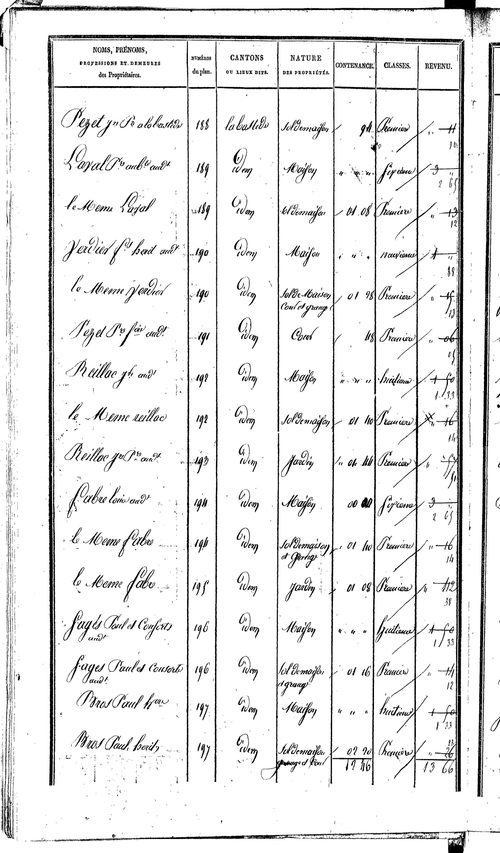 NOMS, PRÉNOMS, PROFESSIONS ET DEMEURES des Propriétaires. NUMÉROS du plan. CANTONS OU LIEUX DITS. NATURE DES PROPRIÉTÉS. CONTENANCE. CLASSES. REVENU.
Pezet a labastide 188 labastide sol de maison 94 Premiere 11
10
Laval 189 idem Maison " " " sixieme 3 "
2 65
le Meme Laval 189 idem sol de maison 01 08 Premiere " 13
12
Verdier 190 idem Maison " " " neuvieme 1 "
88
le Meme Verdier 190 idem sol de Maison 01 28 Premiere " 15
cour et grange 13
Pezet 191 idem Cour 48 Premiere " 06
05
Reillac 192 idem Maison " " " huitieme 1 50
1 33
le Meme reillac 192 idem sol de maison 01 40 Premiere " 16
14
Reillac 193 idem Jardin " 04 44 Premiere "
fabre 194 idem Maison 00 00 sixieme 3 "
2 65
le Meme fabre 194 idem sol de maison 01 40 Premiere " 16
et 14
le Meme fabre 195 idem Jardin 01 08 Premiere " 12
38
Fagés Paul et Consorts 196 idem Maison " " " huitieme 1 50
1 33
Fages Paul et consorts 196 idem sol de maison 01 16 Premiere " 14
et grange 12
Bros Paul 197 idem Maison " " " huitieme 1 50
1 33
Bros Paul 197 idem sol de maison 02 20 Premiere " 26
12 46 13 66